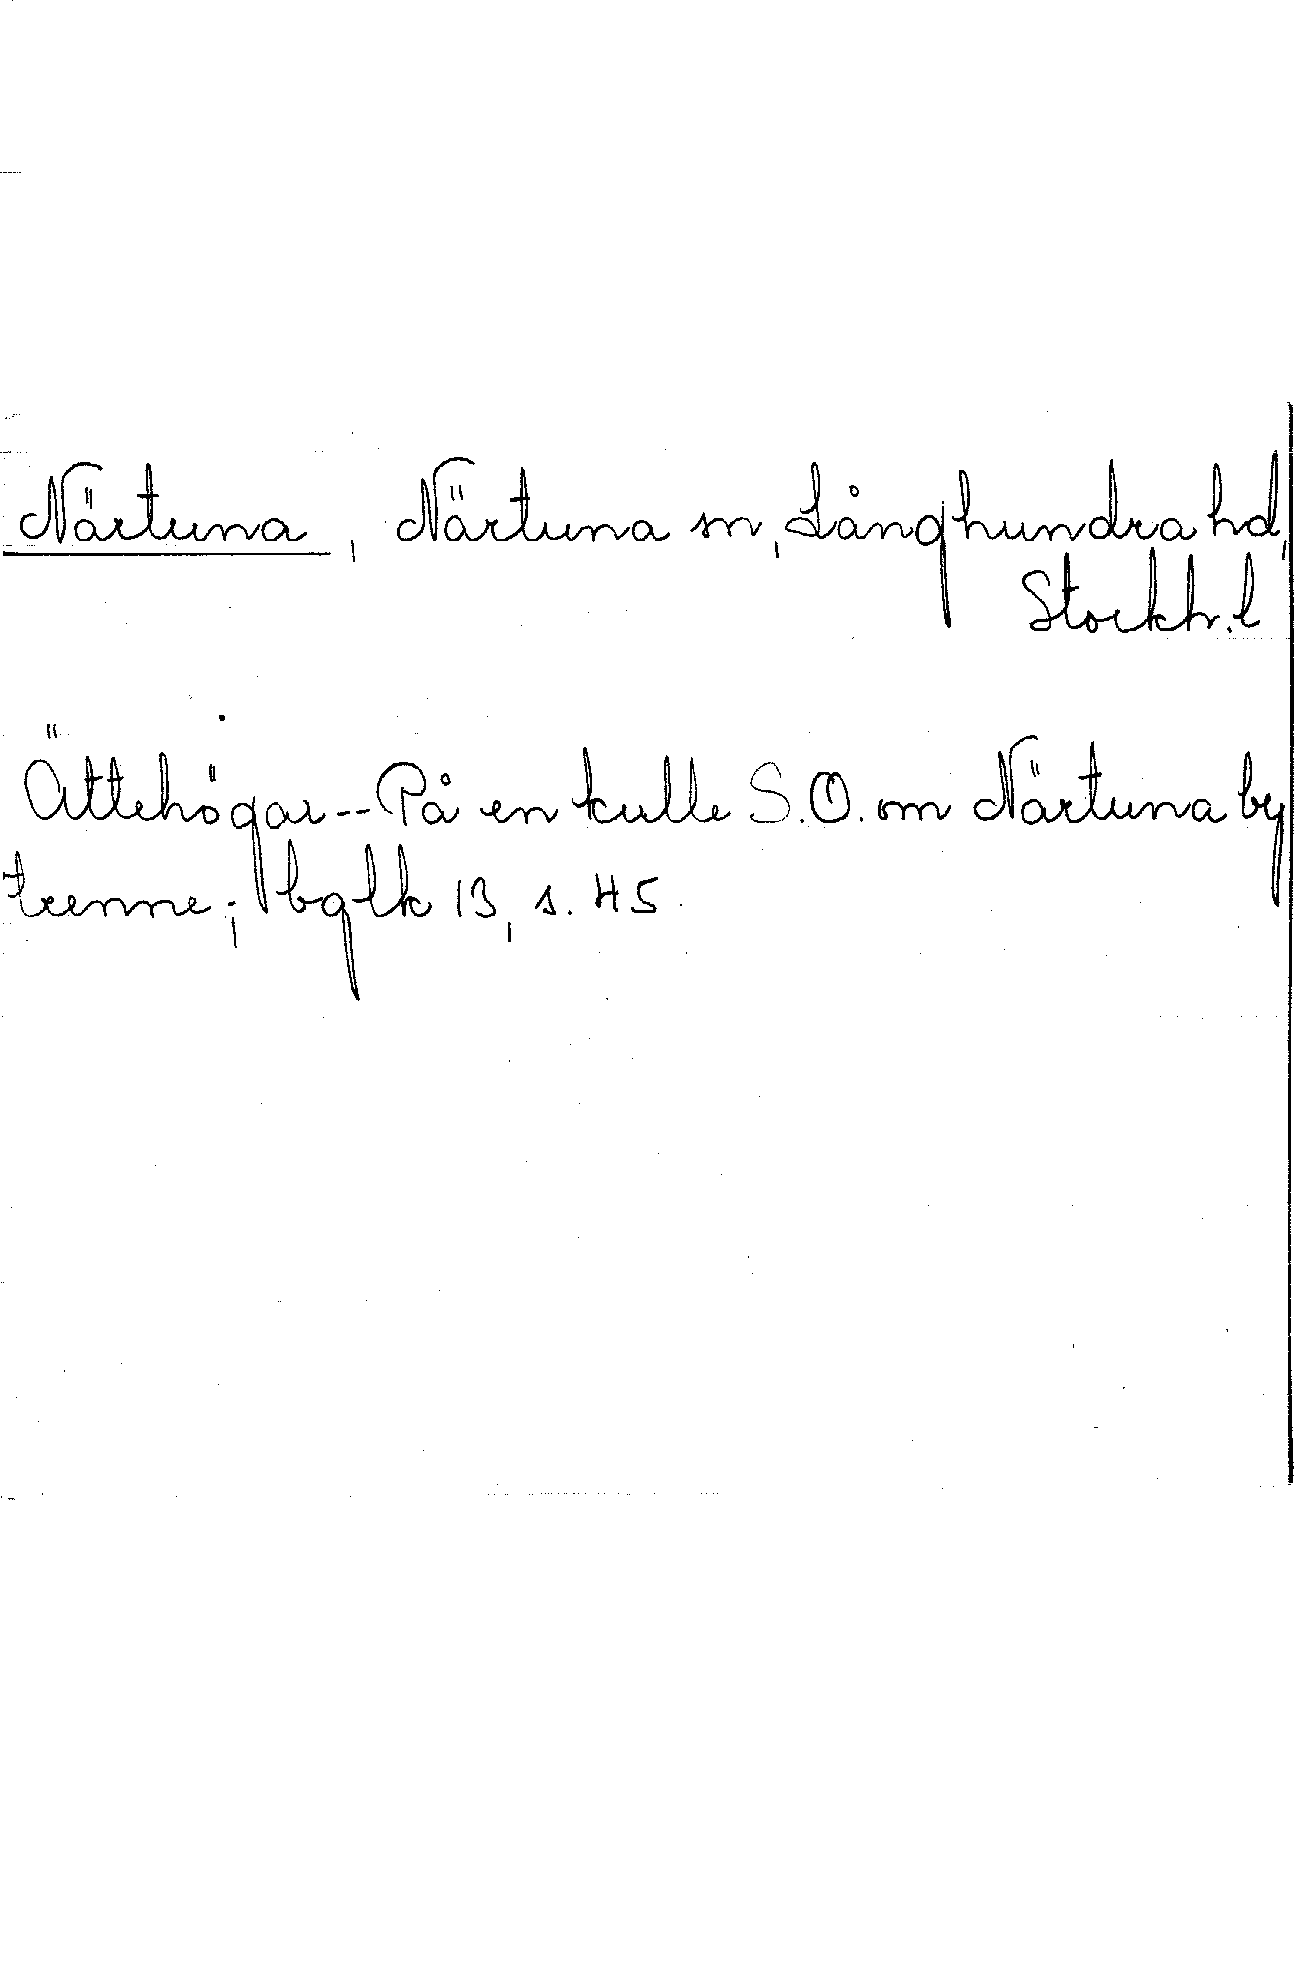 Närtuna, Närtuna sn, Långhundra hd,
Stockh. l
Ättehögar -- På en kulle S.O. om Närtuna by
trenne; bglk 13, s. 45